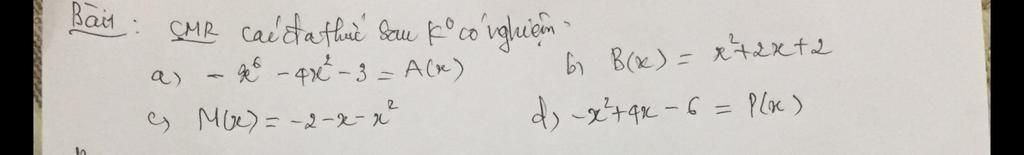 Bài 1 : CMR các đa thức sau k⁰ có nghiệm.
a) - x⁶ - 4x² - 3 = A(x)
b) B(x) = x² + 2x + 2
c) M(x) = -2 - x - x²
d) -x² + 4x - 6 = P(x)